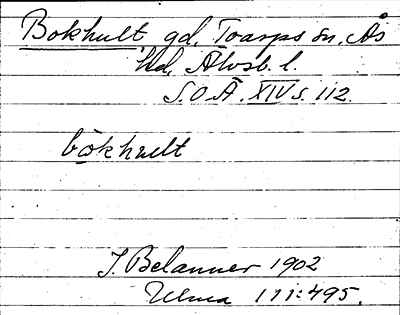 Bokhult gd, Toarps sn, Ås
hd, Älvsb. l.
S.O.Ä. XIV s. 112.
bókhult
J. Belanner 1902
Ulma 111:495.